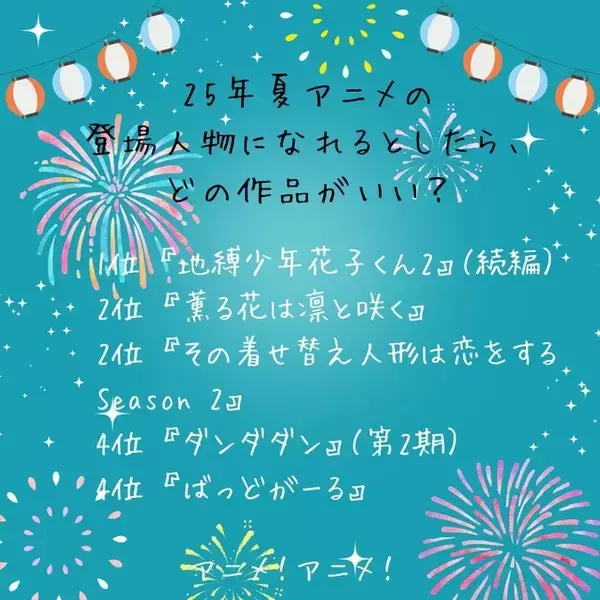 25年夏アニメの
登場人物になれるとしたら、
どの作品がいい？
1位『地縛少年花子くん2』(続編)
2位『薫る花は凛と咲く』
2位『その着せ替え人形は恋をする
Season 2』
4位『ダンダダン』(第2期)
4位『ばっどがーる』
アニメ！アニメ！